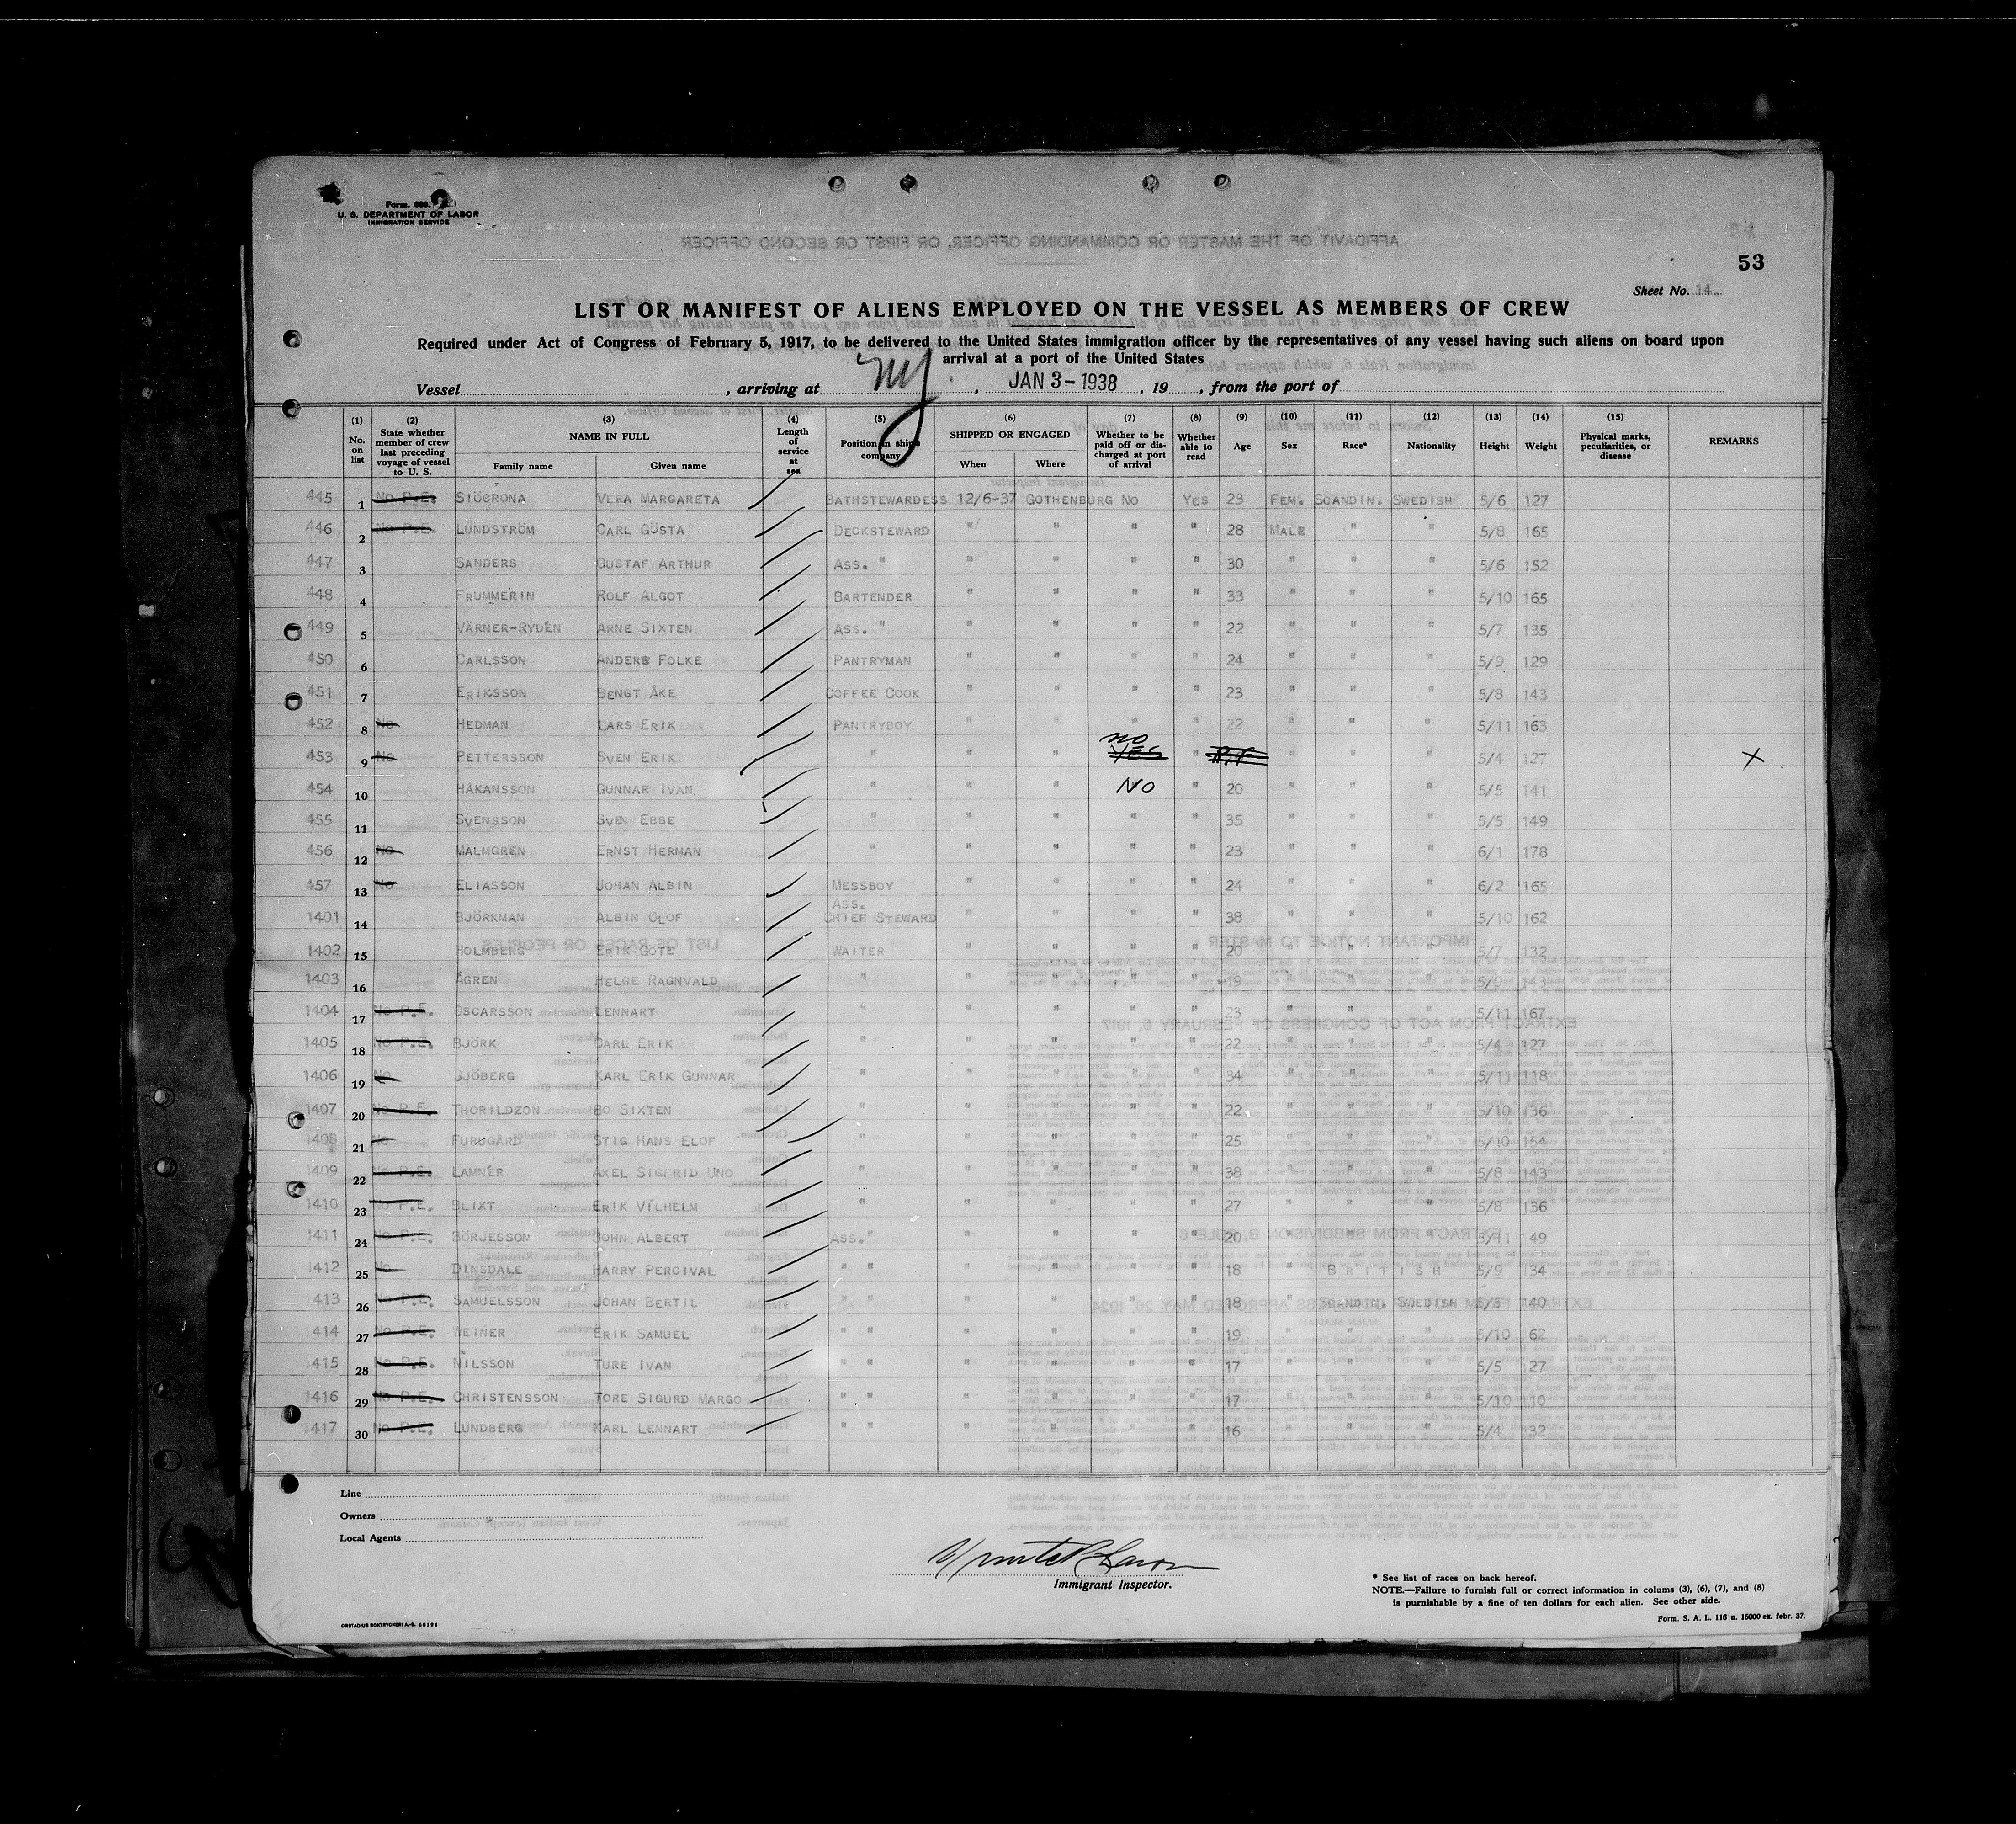 Form. 689.
U. S. DEPARTMENT OF LABOR
IMMIGRATION SERVICE
53
Sheet No. 14
LIST OR MANIFEST OF ALIENS EMPLOYED ON THE VESSEL AS MEMBERS OF CREW
Required under Act of Congress of February 5, 1917, to be delivered to the United States immigration officer by the representatives of any vessel having such aliens on board upon
arrival at a port of the United States
Vessel , arriving at NY , JAN 3-1938 , 19 , from the port of
(1) No. on list (2) State whether member of crew last preceding voyage of vessel to U. S. (3) NAME IN FULL Family name Given name (4) Length of service at sea (5) Position in ship's company (6) SHIPPED OR ENGAGED When Where (7) Whether to be paid off or discharged at port of arrival (8) Whether able to read (9) Age (10) Sex (11) Race* (12) Nationality (13) Height (14) Weight (15) Physical marks, peculiarities, or disease REMARKS
445 1 No P.E. SJÖCRONA VERA MARGARETA BATHSTEWARDESS 12/6-37 GOTHENBURG NO YES 23 FEM. SCANDIN. SWEDISH 5/6 127
446 2 No P.E. LUNDSTRÖM CARL GÖSTA DECKSTEWARD " " " " 28 MALE " " 5/8 165
447 3 SANDERS GUSTAF ARTHUR ASS. " " " " " 30 " " " 5/6 152
448 4 FRUMMERIN ROLF ALGOT BARTENDER " " " " 33 " " " 5/10 165
449 5 VÄRNER-RYDÉN ARNE SIXTEN ASS. " " " " " 22 " " " 5/7 135
450 6 CARLSSON ANDERS FOLKE PANTRYMAN " " " " 24 " " " 5/9 129
451 7 ERIKSSON BENGT ÅKE COFFEE COOK " " " " 23 " " " 5/8 143
452 8 No HEDMAN LARS ERIK PANTRYBOY " " " " 22 " " " 5/11 163
453 9 No PETTERSSON SVEN ERIK " " " no YES " " " " 5/4 127 X
454 10 HÅKANSSON GUNNAR IVAN " " " NO " 20 " " " 5/5 141
455 11 SVENSSON SVEN EBBE " " " " " 35 " " " 5/5 149
456 12 No MALMGREN ERNST HERMAN " " " " " 23 " " " 6/1 178
457 13 No ELIASSON JOHAN ALBIN MESSBOY " " " " 24 " " " 6/2 165
1401 14 BJÖRKMAN ALBIN OLOF ASS. CHIEF STEWARD " " " " 38 " " " 5/10 162
1402 15 HOLMBERG ERIK GÖTE WAITER " " " " 20 " " " 5/7 132
1403 16 ÅGREN HELGE RAGNVALD " " " " " 19 " " " 5/9 143
1404 17 No P.E. OSCARSSON LENNART " " " " " 23 " " " 5/11 167
1405 18 No P.E. BJÖRK CARL ERIK " " " " " 22 " " " 5/4 127
1406 19 No SJÖBERG KARL ERIK GUNNAR " " " " " 34 " " " 5/11 118
1407 20 No P.E. THORILDZON BO SIXTEN " " " " " 22 " " " 5/10 136
1408 21 No FURUGÅRD STIG HANS ELOF " " " " " 25 " " " 5/10 154
1409 22 No P.E. LAMNÉR AXEL SIGFRID UNO " " " " " 38 " " " 5/8 143
1410 23 No P.E. BLIXT ERIK VILHELM " " " " " 27 " " " 5/8 136
1411 24 No P.E. BÖRJESSON JOHN ALBERT ASS. " " " " " 20 " " " 5/11 49
1412 25 No DINSDALE HARRY PERCIVAL " " " " " " 18 " BRITISH 5/9 134
413 26 No P.E. SAMUELSSON JOHAN BERTIL " " " " " " 18 " SCANDIN. SWEDISH 5/5 140
414 27 No P.E. WEINER ERIK SAMUEL " " " " " " 19 " " " 5/10 62
415 28 No P.E. NILSSON TURE IVAN " " " " " " 17 " " " 5/5 27
1416 29 No P.E. CHRISTENSSON TORE SIGURD MARGO " " " " " " 17 " " " 5/10 110
1417 30 No P.E. LUNDBERG KARL LENNART " " " " " " 16 " " " 5/4 132
Line
Owners
Local Agents
Immigrant Inspector.
* See list of races on back hereof.
NOTE.—Failure to furnish full or correct information in colums (3), (6), (7), and (8)
is punishable by a fine of ten dollars for each alien. See other side.
Form. S. A. L. 116 n. 15000 ex. febr. 37.